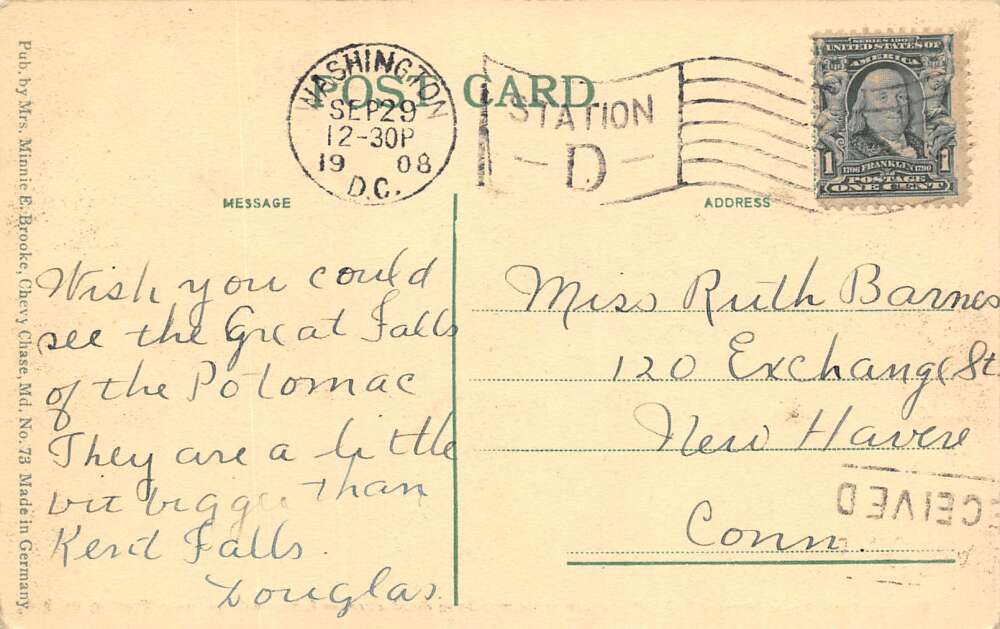 Pub. by Mrs. Minnie E. Brooke, Chevy Chase, Md. No. 73 Made in Germany.
POST CARD
WASHINGTON
SEP 29
12-30P
19 08
D.C.
STATION
- D -
SERIES 1902
UNITED STATES OF
AMERICA
1 FRANKLIN 1
1706 1790
POSTAGE
ONE CENT
MESSAGE
Wish you could
see the Great Falls
of the Potomac
They are a little
bit bigger than
Kent Falls.
Douglas.
ADDRESS
Miss Ruth Barnes
120 Exchange St
New Haven
Conn.
CEIVED